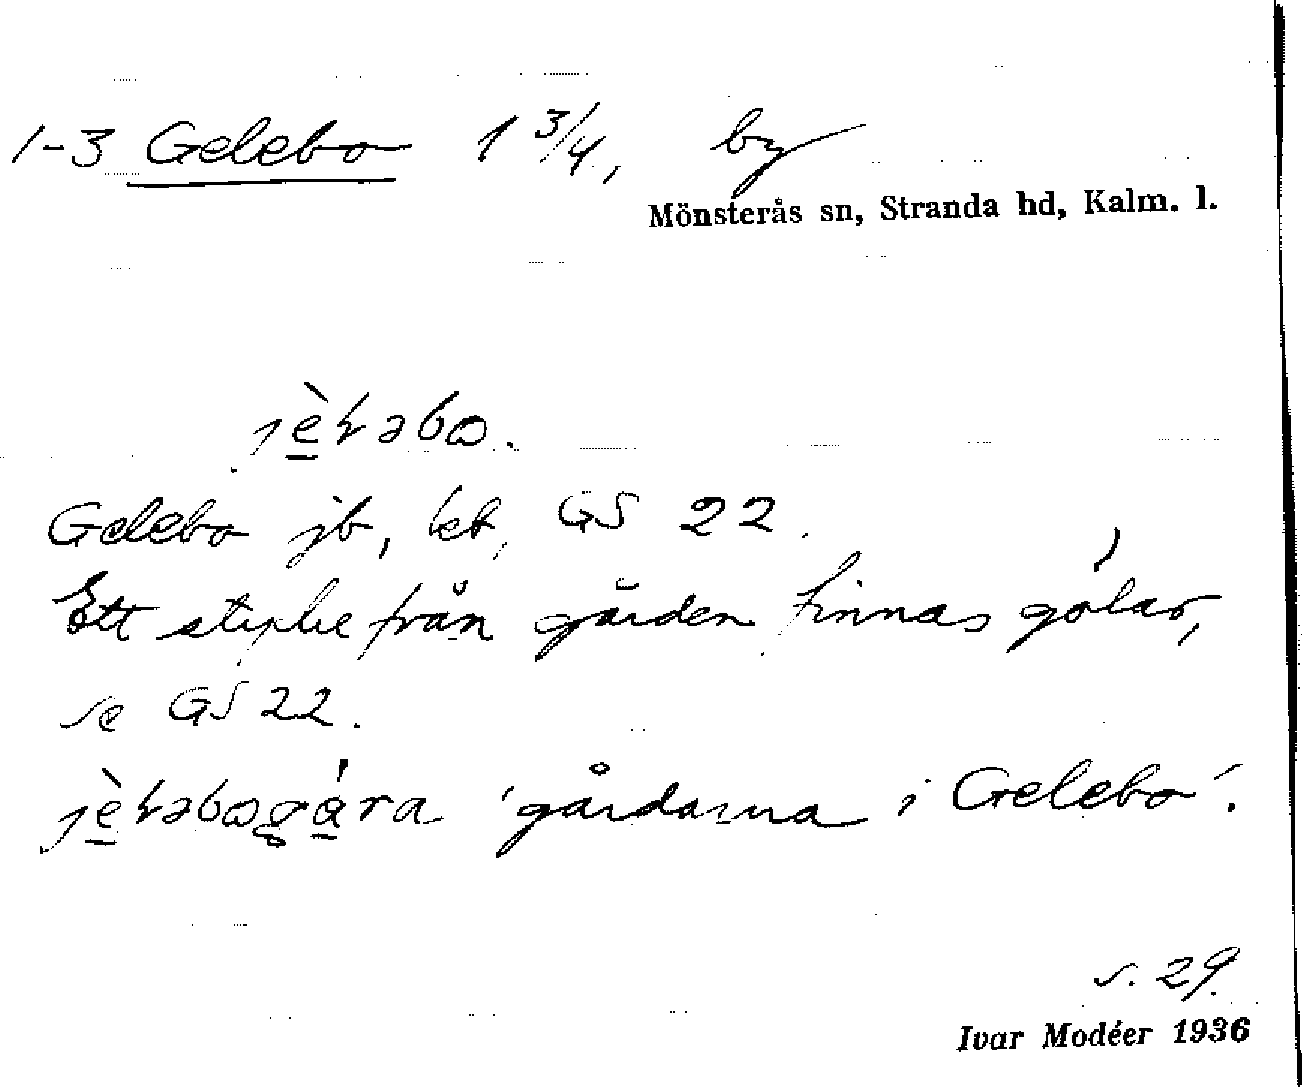 1-3 Gelebo 1 3/4, by
Mönsterås sn, Stranda hd, Kalm. l.
jèɫəbꞷ.
Gelebo jb, kb, GS 22.
Ett stycke från gården finnas gölar,
se GS 22.
jèɫəbꞷgára 'gårdarna i Gelebo'.
s. 29.
Ivar Modéer 1936